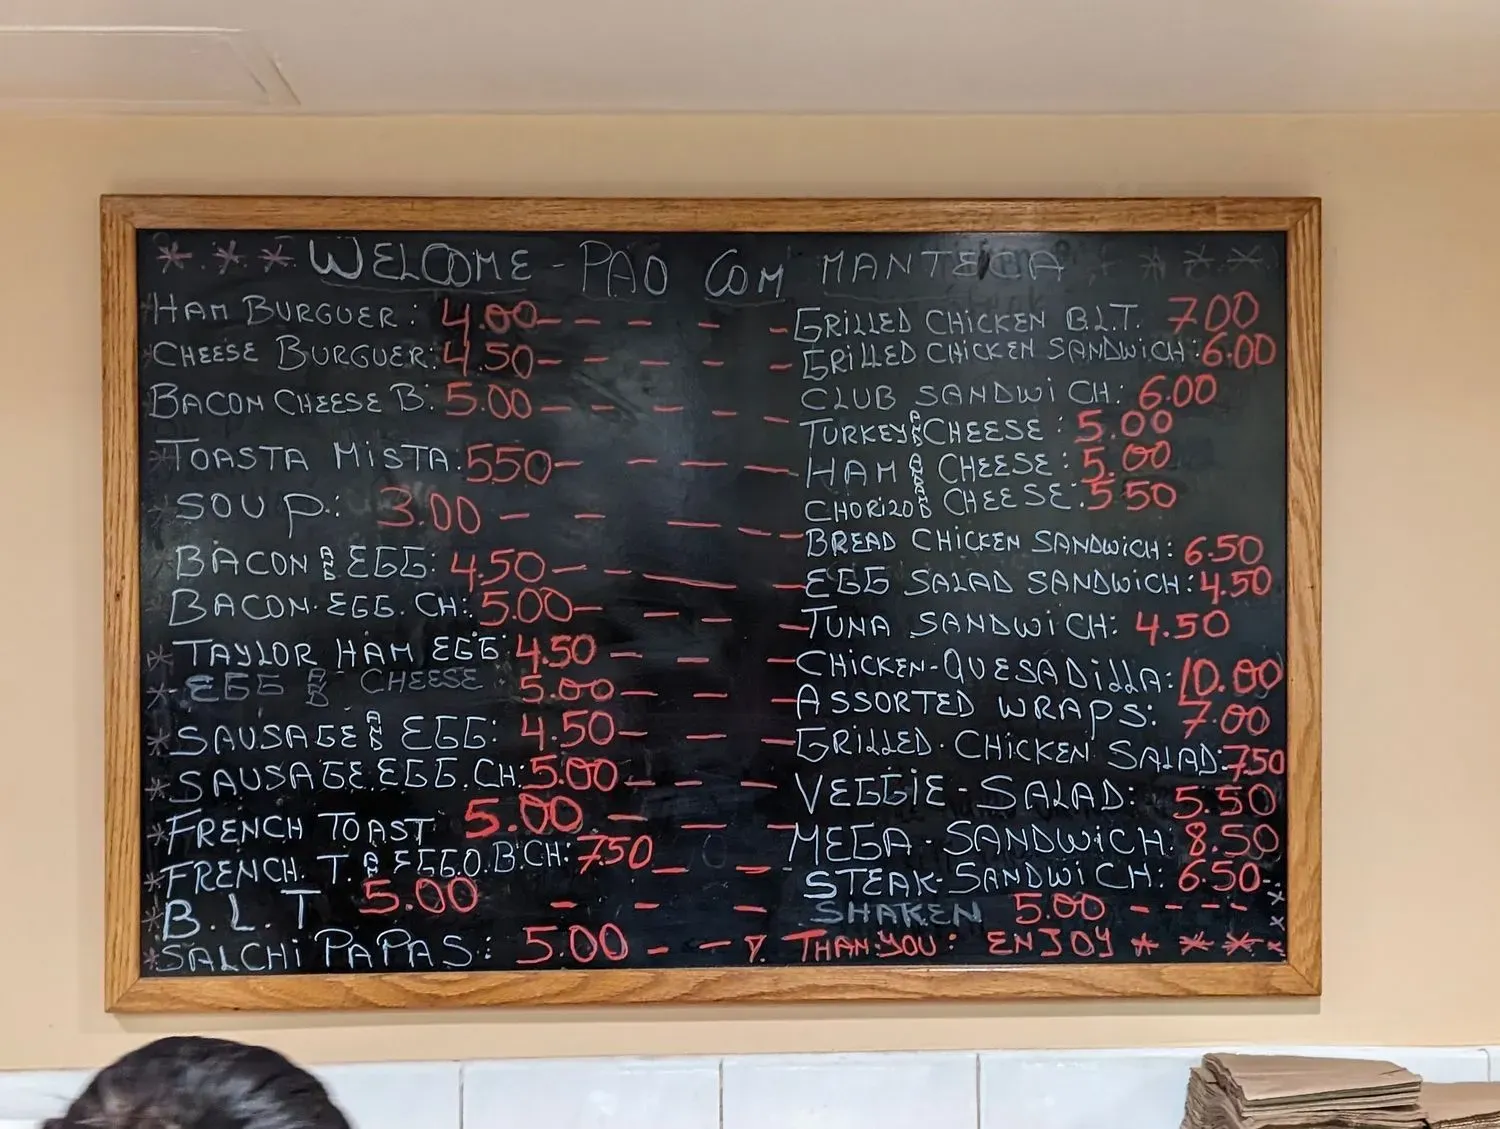 * * * WELCOME - PAO COM MANTECA * * *
HAM BURGUER: 4.00
CHEESE BURGUER: 4.50
BACON CHEESE B: 5.00
TOASTA MISTA: 550
SOUP: 3.00
BACON AND EGG: 4.50
BACON. EGG. CH: 5.00
TAYLOR HAM EGG: 4.50
EGG AND CHEESE 5.00
SAUSAGE AND EGG: 4.50
SAUSAGE.EGG.CH: 5.00
FRENCH TOAST 5.00
FRENCH. T. & EGG.O.B.CH: 750
B.L.T 5.00
SALCHI PAPAS: 5.00
GRILLED CHICKEN B.L.T. 700
GRILLED CHICKEN SANDWICH: 6.00
CLUB SANDWICH: 6.00
TURKEY AND CHEESE: 5.00
HAM AND CHEESE: 5.00
CHORIZO AND CHEESE: 5.50
BREAD CHICKEN SANDWICH: 6.50
EGG SALAD SANDWICH: 4.50
TUNA SANDWICH: 4.50
CHICKEN-QUESADILLA: 10.00
ASSORTED WRAPS: 7.00
GRILLED. CHICKEN SALAD: 750
VEGGIE - SALAD: 5.50
MEGA - SANDWICH: 8.50
STEAK-SANDWICH: 6.50
SHAKEN 5.00
THANYOU: ENJOY * * * *